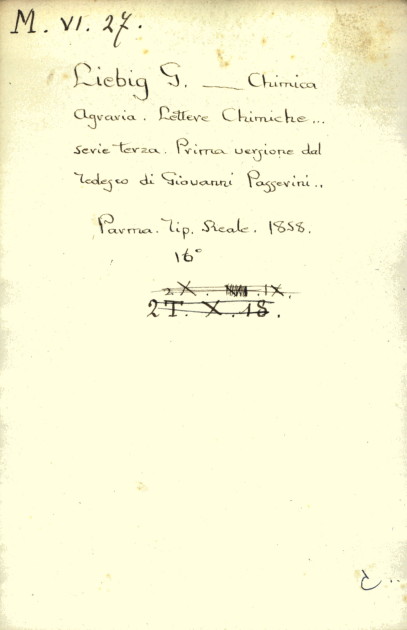 M. VI. 27.
Liebig G. — Chimica
Agraria. Lettere Chimiche...
serie terza. Prima versione dal
Tedesco di Giovanni Passerini..
Parma. Tip. Reale. 1858.
16°
2 X. . IX.
2 T. X. 18.